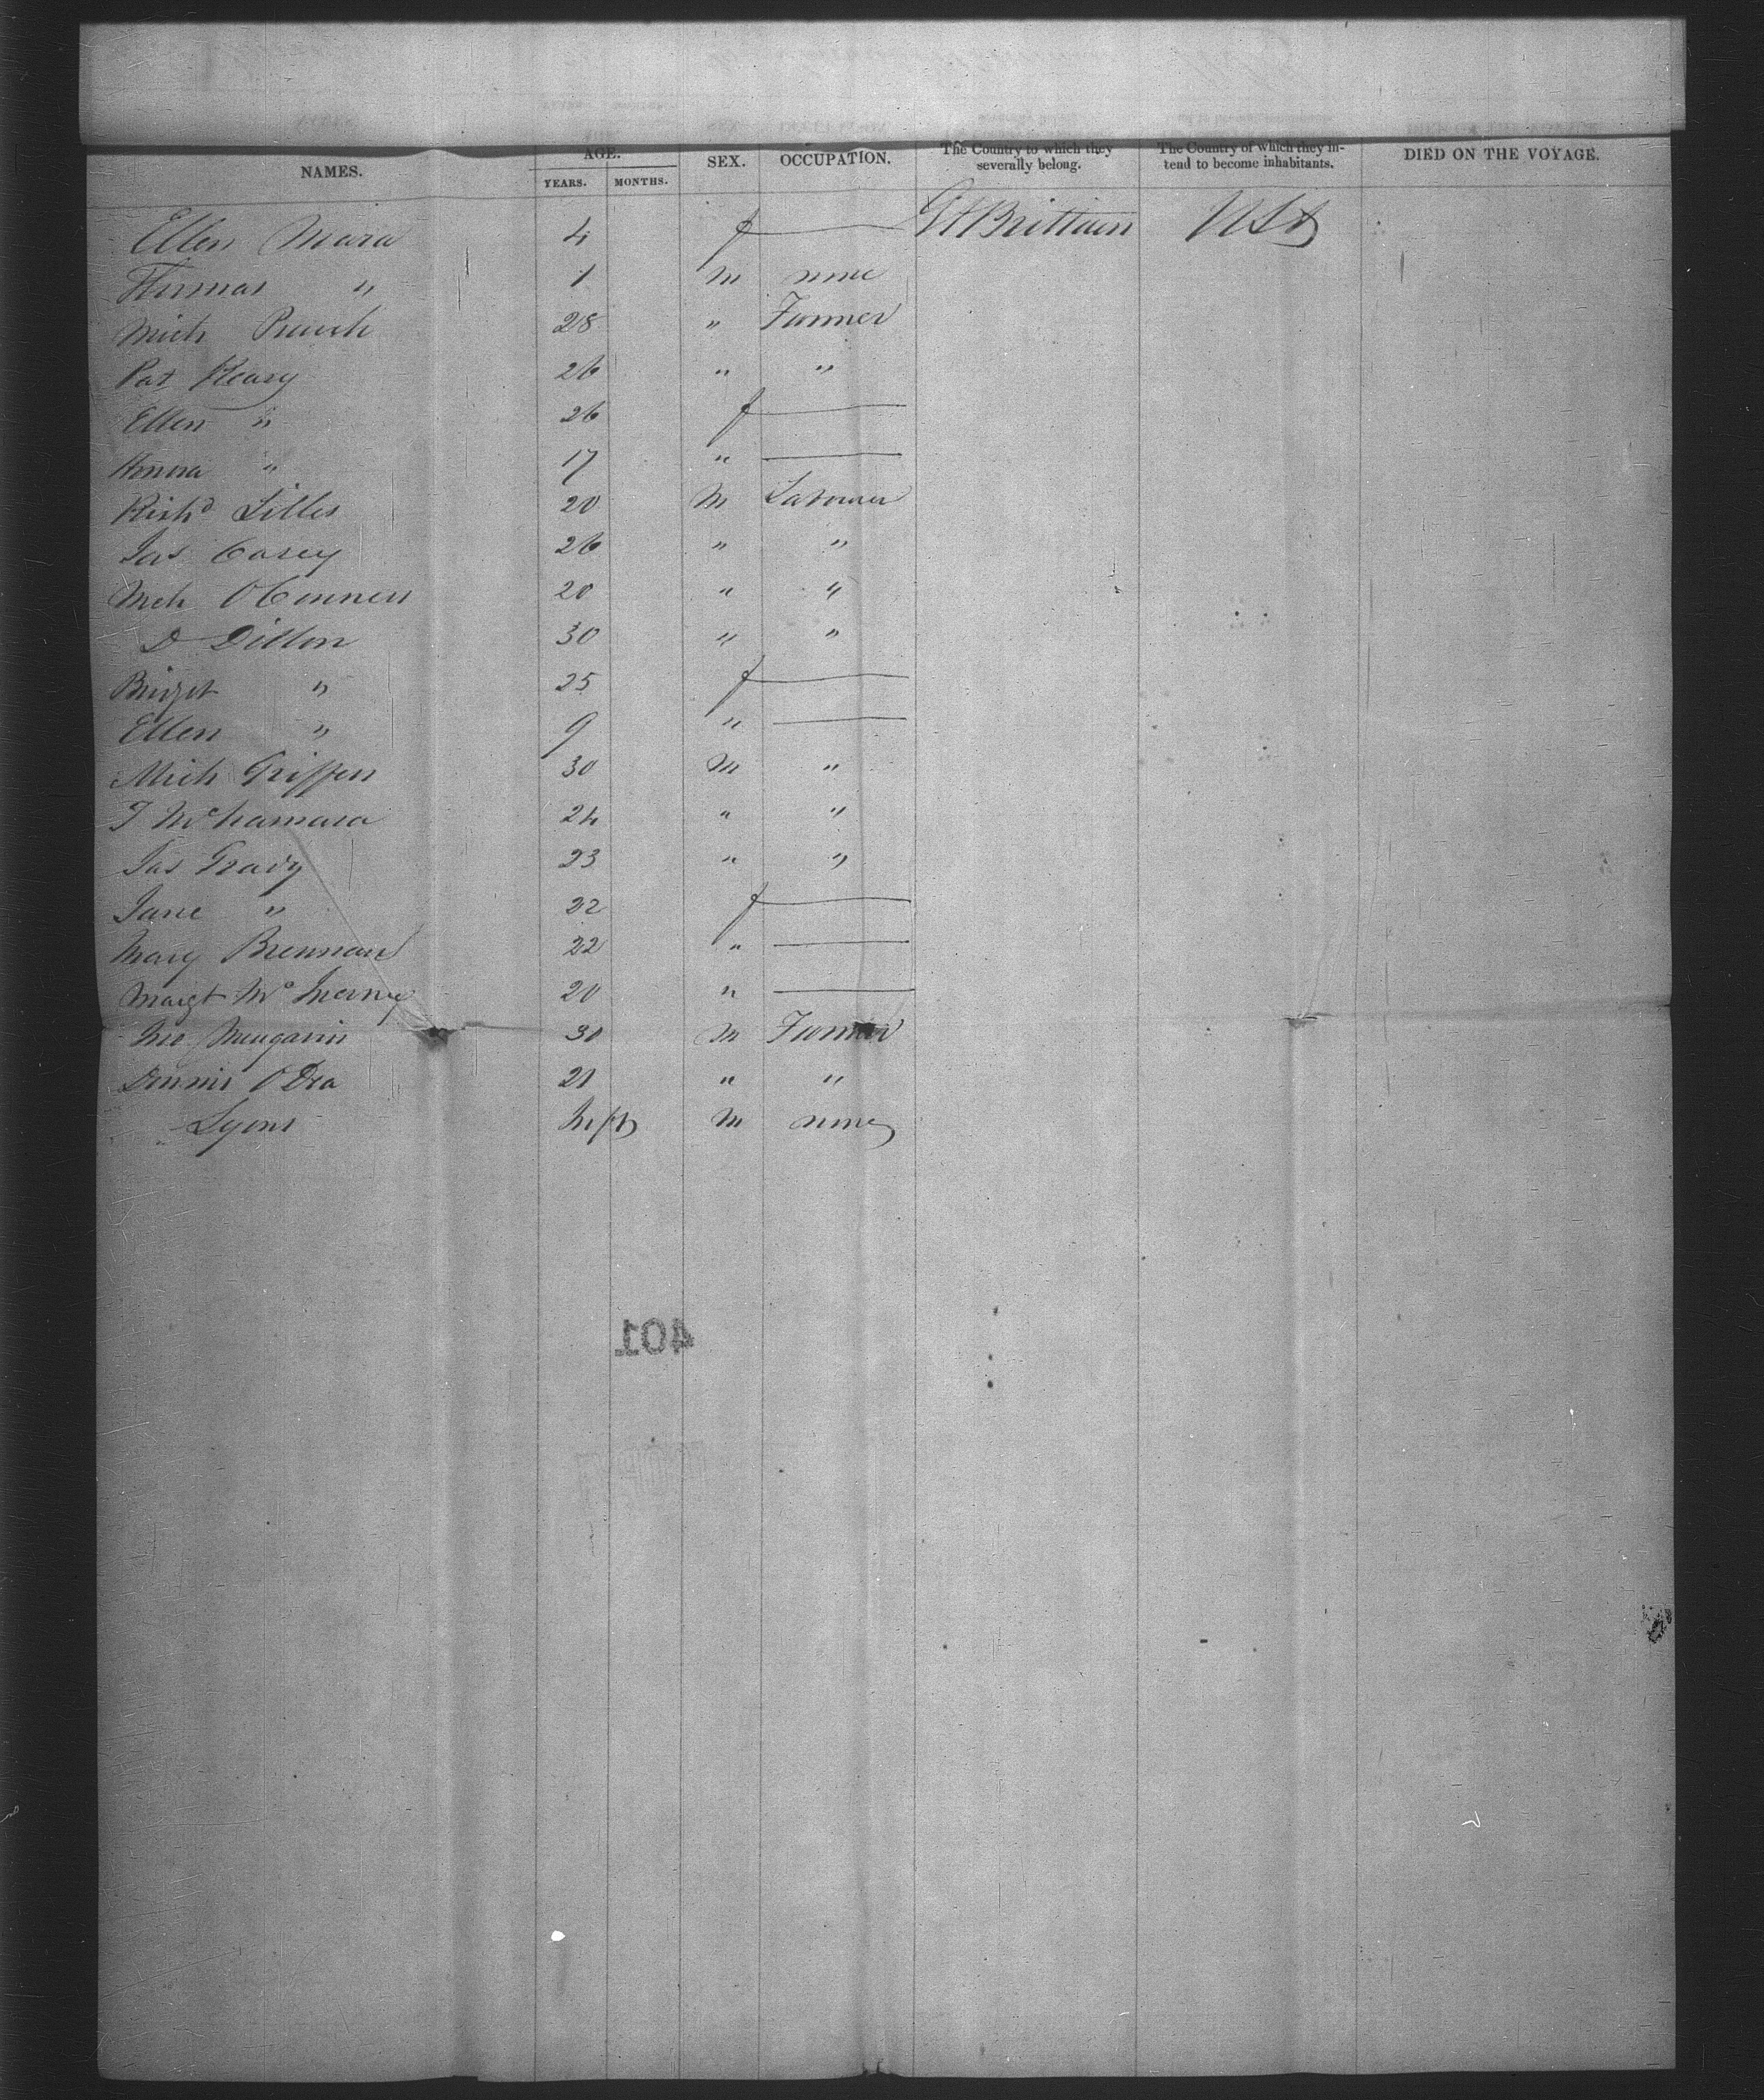 NAMES. AGE. YEARS. MONTHS. SEX. OCCUPATION. The Country to which they severally belong. The Country of which they intend to become inhabitants. DIED ON THE VOYAGE.
Ellen Mara 4 f — Gt Brittain USA
Thomas " 1 M none
Mich 28 " Farmer
Pat Cleary 26 " "
Ellen " 26 f —
Honora " 17 " —
Richd Lilles 20 M Labourer
Jas Carey 26 " "
Mich OConnell 20 " "
D Dillon 30 " "
Bridget " 25 f —
Ellen " 9 " —
Mich Griffen 30 M "
T McNamara 24 " "
Jas Grady 23 " "
Jane " 22 f —
Mary Brennan 22 " —
Margt Mc Inerny 20 " —
Jno 30 M Farmer
Dennis ODea 21 " "
Lyons Inft M none
401